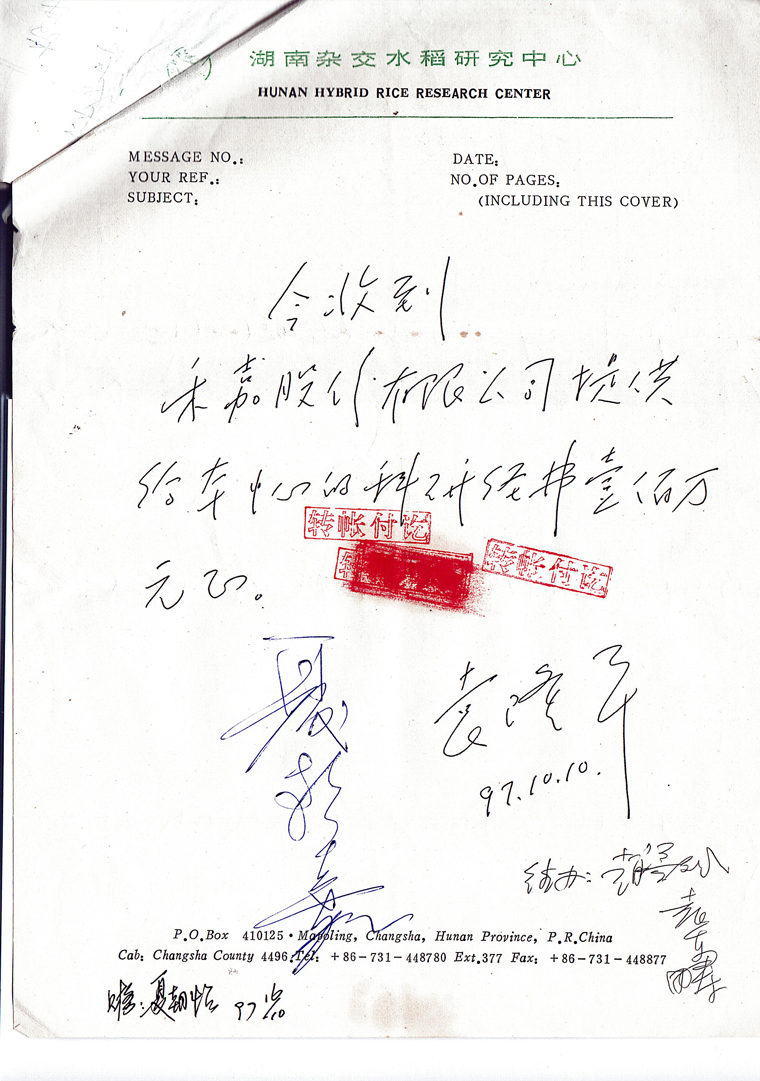 湖南杂交水稻研究中心
HUNAN HYBRID RICE RESEARCH CENTER
MESSAGE NO.:
DATE:
YOUR REF.:
NO.OF PAGES:
SUBJECT:
(INCLUDING THIS COVER)
今收到
禾嘉股份有限公司提供
给本中心的科研经费壹佰万
转帐付讫
转帐付讫
元正。
夏朝嘉
袁隆平
97.10.10.
经办:
P.O.Box 410125·Mapoling, Changsha, Hunan Province, P.R.China
Cab: Changsha County 4496. Tel: +86-731-448780 Ext.377 Fax: +86-731-448877
夏朝怡 97